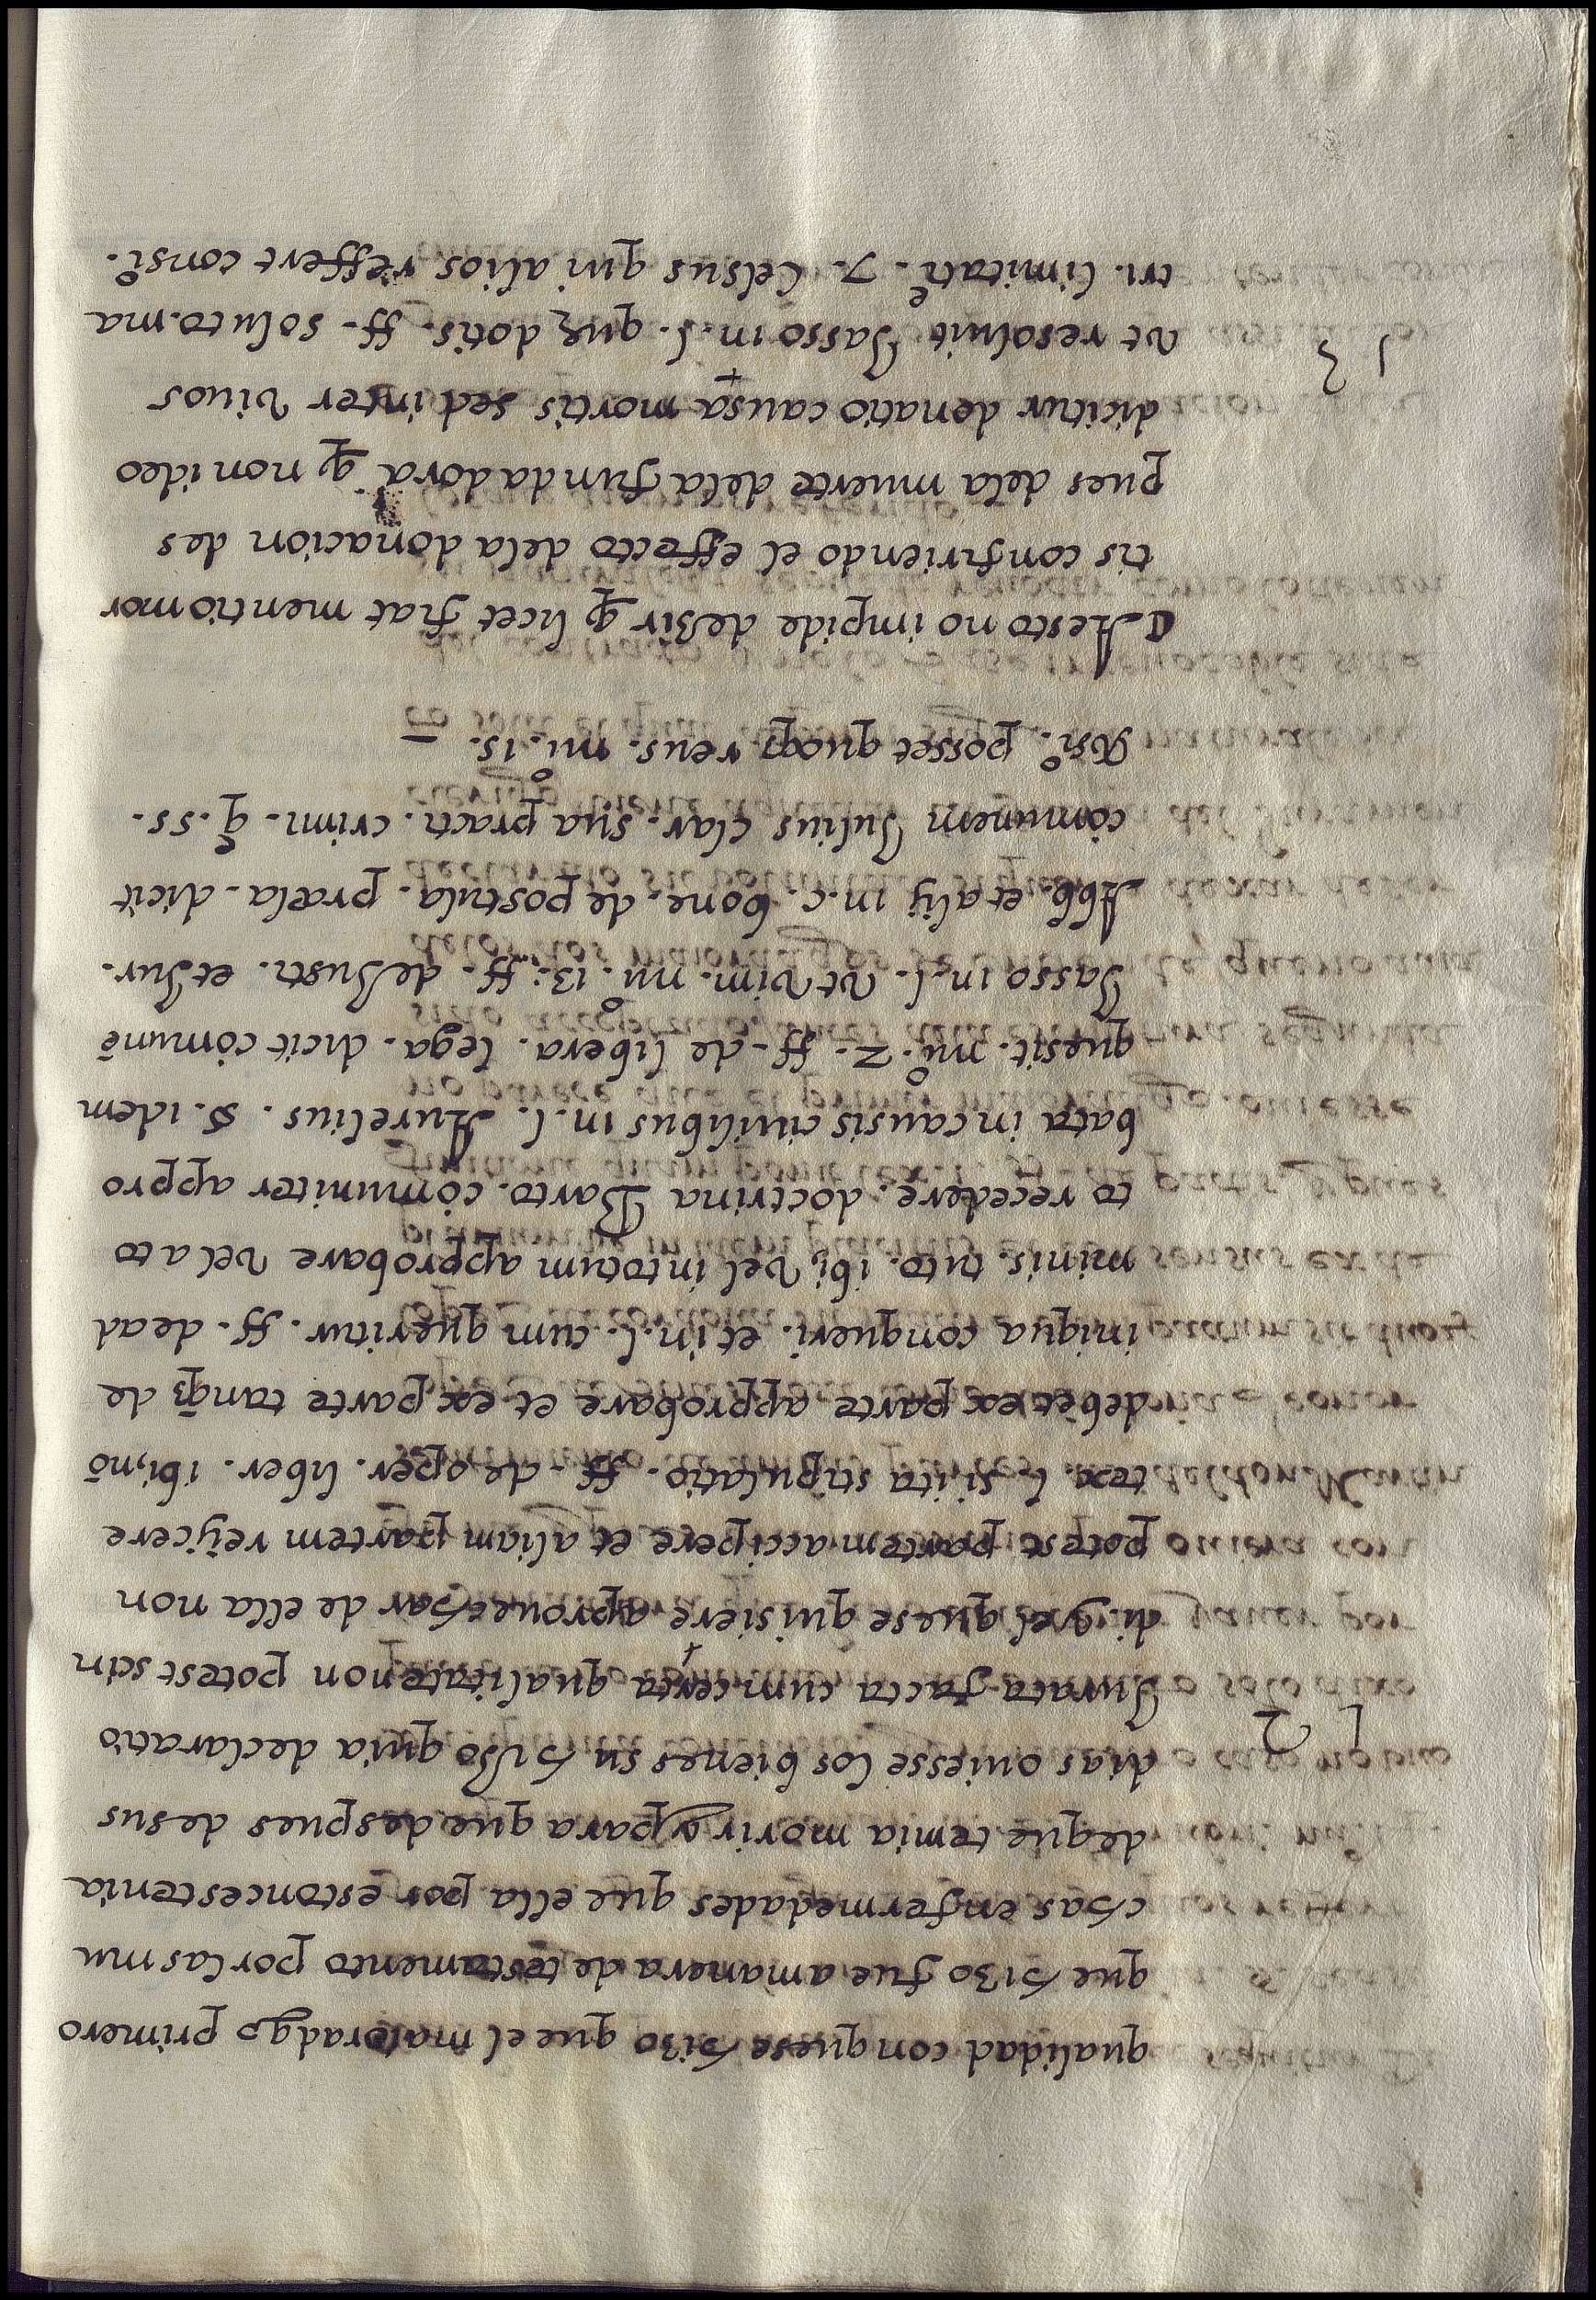 qualidad con quese hizo que el maioradgo primero
que hizo fue a manera de testamento por las mu
chas enfermedades que ella por estonces tenia
de que temia morir y para que despues de sus
dias ouiesse los bienes su hijo quia declaratio
12
Jurata facta cum certa qualitate non potest scin
di. y el quese quisiere aprouechar de ella non
potest partem accipere et aliam partem reijcere
tex. l. si ita stipulatio. ff. de oper. liber. ibi, nō
debet ex parte approbare et ex parte tanq̄ de
iniqua conqueri. et in. l. cum queritur. ff. de ad
minis. tuto. ibi, vel in totum approbare vel a to
to recedere. doctrina Barto. comuniter appro
bata in causis ciuilibus in. l. Aurelius. §. idem
quęsit. nu.º 2. ff. de libera. lega. dicit comunē
Jasso in. l. vt vim. nu.º 13. ff. de Justi. et Jur.
Abb. et alij in. c. bone. de postula. præla. dicit
comunem Julius clar. sua pract. crimi. q̄. 55.
Rsi.º posset quoq; reus. nu.º 15.
A esto no impide dezir q̄ licet fiat mentio mor
tis confiriendo el effecto dela donacion des
pues dela muerte dela fundadora q̄ non ideo
dicitur donatio causa mortis sed inter viuos
13
vt resoluit Jasso in. l. quę dotis. ff. soluto. ma
tri. limitatiᵉ. 7. Celsus qui alios reffert consi.º